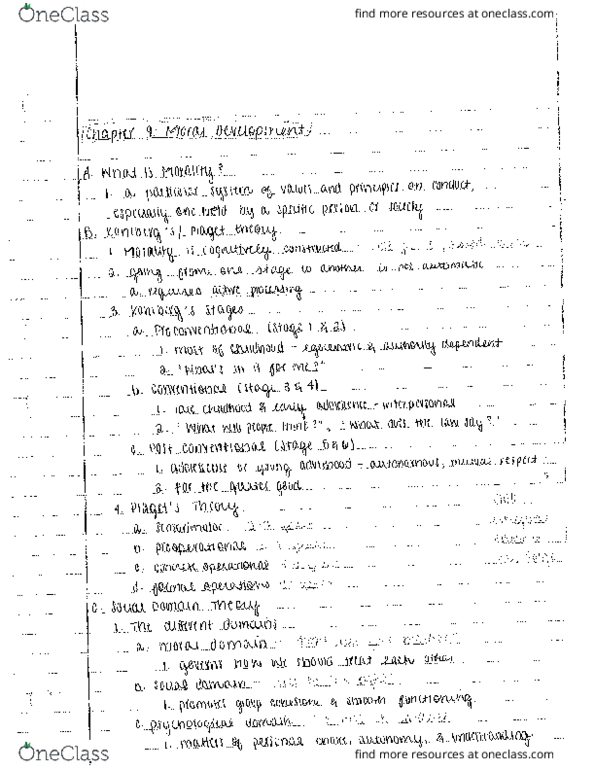 OneClass
find more resources at oneclass.com
Chapter 9: Moral Development
A. What is Morality?
1. a particular system of values and principles on conduct,
especially one held by a specific person or society
B. Kohlberg's / Piaget theory
1. Morality is cognitively constructed
2. going from one stage to another is not automatic
a. requires active processing
3. Kohlberg's stages
a. Preconventional (stage 1 & 2)
1. most of childhood - egocentric & authority dependent
2. "What's in it for me?"
b. conventional (stage 3 & 4)
1. late childhood & early adolescence - interpersonal
2. "What will people think?", "what does the law say?"
c. Post conventional (stage 5 & 6)
1. adolescence or young adulthood - autonomous, mutual respect
2. for the greater good
4. Piaget's Theory
a. sensorimotor
b. preoperational
c. concrete operational
d. formal operations
C. Social Domain Theory
1. The different domains
a. moral domain
1. governs how we should treat each other
b. social domain
1. promotes group cohesion & smooth functioning
c. psychological domain
1. matters of personal choice, autonomy, &
OneClass
find more resources at oneclass.com